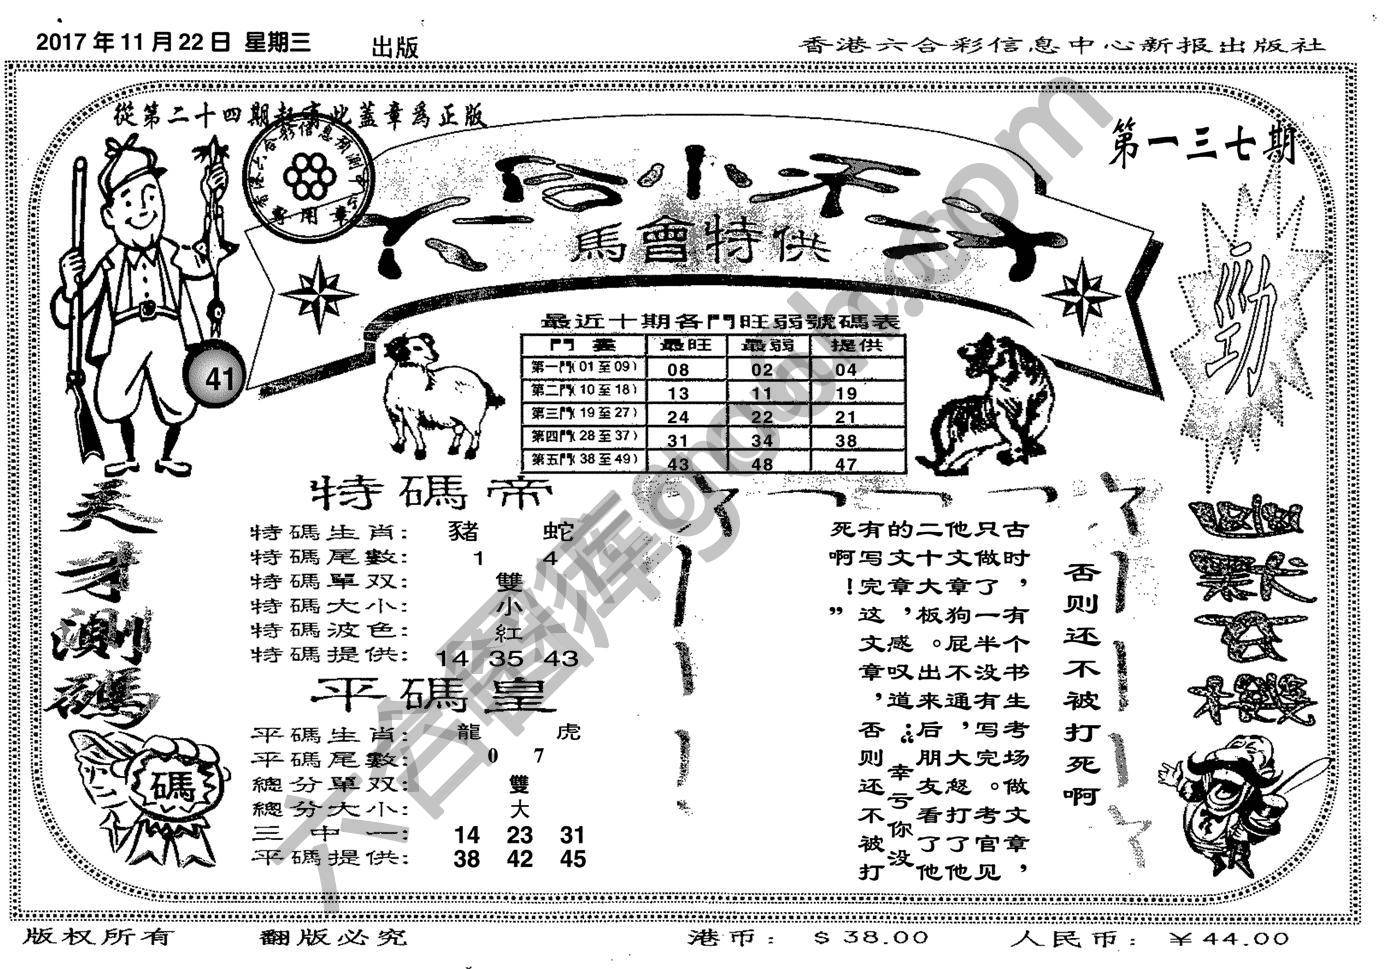 2017年11月22日 星期三
出版
香港六合彩信息中心新报出版社
從第二十四期起憲此蓋章爲正版
第一三七期
專用章
六合小子
馬會特供
勁
41
最近十期各門旺弱號碼表
最旺 最弱 提供
第一門(01至09) 08 02 04
第二門(10至18) 13 11 19
第三門(19至27) 24 22 21
第四門(28至37) 31 34 38
第五門(38至49) 43 48 47
天才測碼
特碼帝
特碼生肖: 豬 蛇
特碼尾數: 1 4
特碼單双: 雙
特碼大小: 小
特碼波色: 紅
特碼提供: 14 35 43
平碼皇
平碼生肖: 龍 虎
平碼尾數: 0 7
總分單双: 雙
總分大小: 大
三中一: 14 23 31
平碼提供: 38 42 45
碼
否则还不被打死啊
古时,有个书生考场做文章,
只做了一半没有写完。考官见
他文章狗屁不通,大怒打了他
二十大板。出来后朋友看了他
的文章,感叹道:“幸亏你没
有写完这文章,否则还不被打
死啊!”
幽默玄機
六合图库gwdh.com
版权所有
翻版必究
港币: $38.00
人民币: ￥44.00